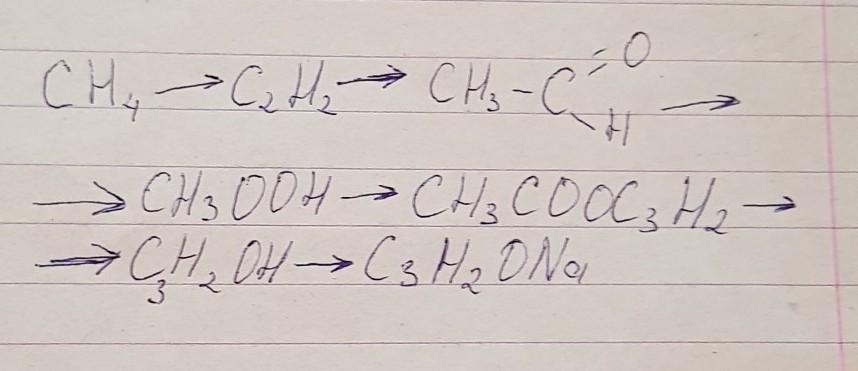 CH₄ → C₂H₂ → CH₃-C(=O)H →
→ CH₃OOH → CH₃COOC₃H₂ →
→ C₃H₂OH → C₃H₂ONa